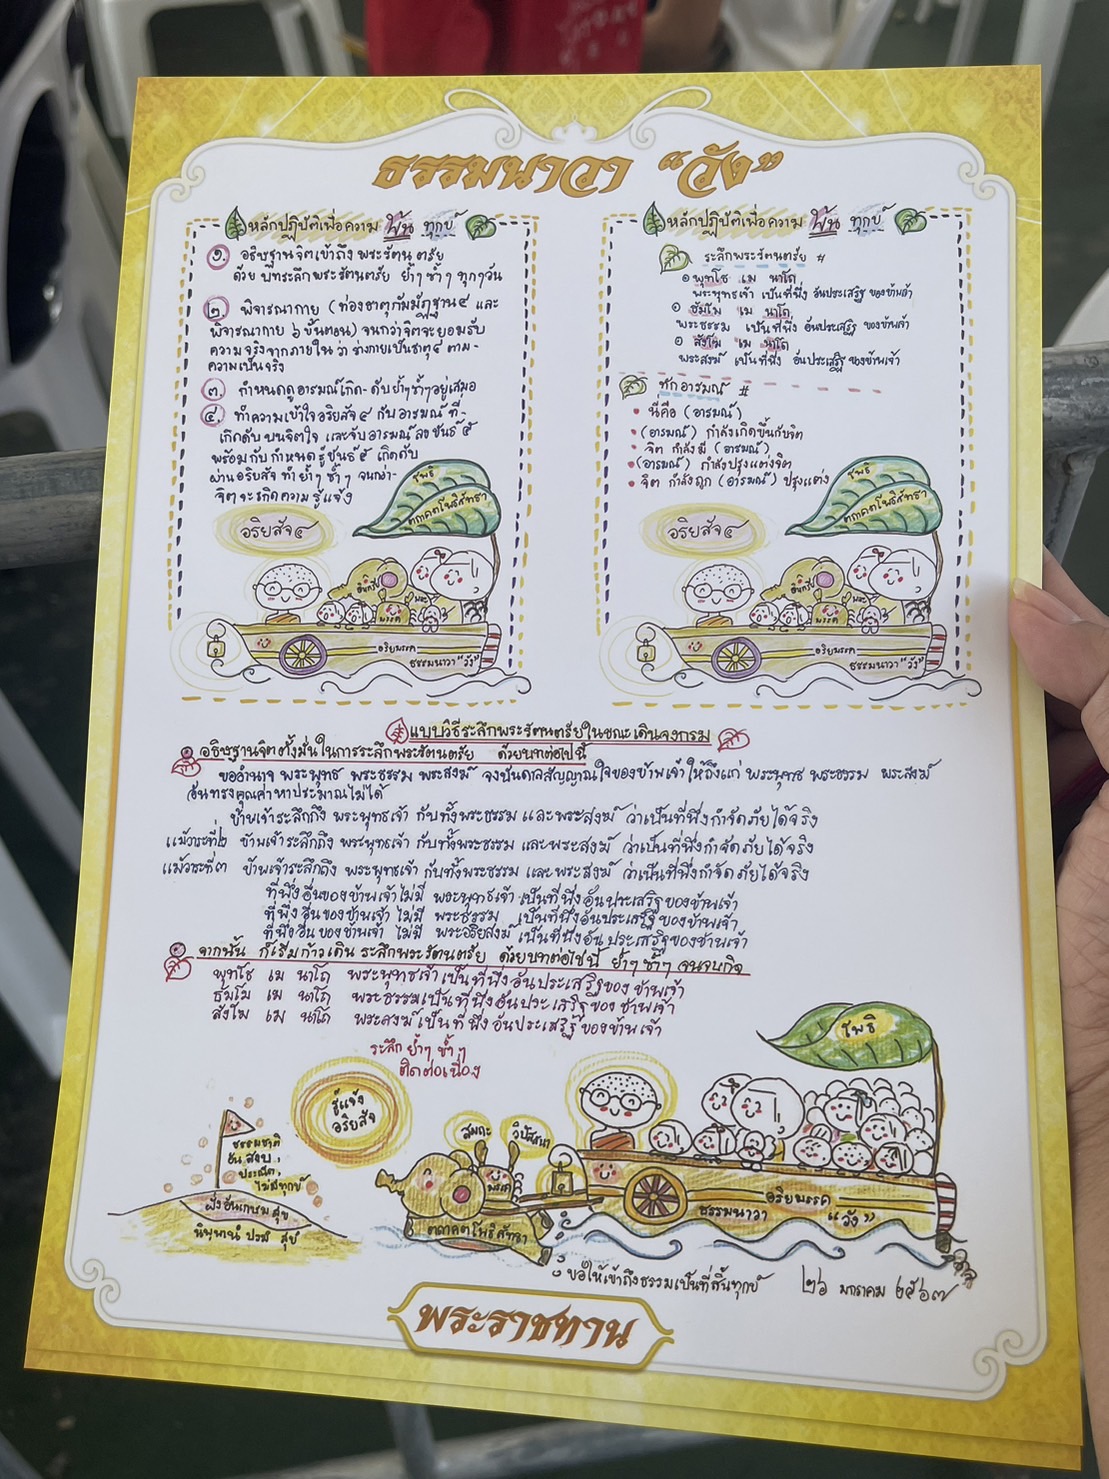 ธรรมนาวา “วัง”
หลักปฏิบัติเพื่อความ พ้น ทุกข์
๑. อธิษฐานจิตเข้าถึง พระรัตนตรัย
ด้วย บทระลึกพระรัตนตรัย ย้ำๆ ซ้ำๆ ทุกๆวัน
๒ พิจารณากาย (ท่องธาตุกัมมัฏฐาน๔ และ
พิจารณากาย ๖ ขั้นตอน) จนกว่าจิตจะยอมรับ
ความจริงจากภายใน ว่า ร่างกายเป็นธาตุ๔ ตาม-
ความเป็นจริง
๓. กำหนดดูอารมณ์เกิด-ดับ ย้ำๆ ซ้ำๆ อยู่เสมอ
๔. ทำความเข้าใจอริยสัจ ๔ กับ อารมณ์ ที่-
เกิดดับ บนจิตใจ และจับอารมณ์ลงขันธ์ ๕
พร้อมกับ กำหนดรู้ขันธ์ ๕ เกิดดับ
ผ่านอริยสัจ ทำย้ำๆ ซ้ำๆ จนกว่า-
จิตจะเกิดความ รู้แจ้ง
โพธิ
ตถาคตโพธิสัทธา
อริยสัจ๔
พรรค
อริยมรรค
ธรรมนาวา “วัง”
หลักปฏิบัติเพื่อความ พ้น ทุกข์
ระลึกพระรัตนตรัย #
๑ พุทโธ เม นาโถ
พระพุทธเจ้า เป็นที่พึ่ง อันประเสริฐ ของข้าเจ้า
๑ ธัมโม เม นาโถ
พระธรรม เป็นที่พึ่ง อันประเสริฐ ของข้าเจ้า
๑ สังโฆ เม นาโถ
พระสงฆ์ เป็นที่พึ่ง อันประเสริฐ ของข้าเจ้า
ทักอารมณ์ #
• นี่คือ (อารมณ์)
• (อารมณ์) กำลังเกิดขึ้นกับจิต
• จิต กำลังมี (อารมณ์)
• (อารมณ์) กำลังปรุงแต่งจิต
• จิต กำลังถูก (อารมณ์) ปรุงแต่ง
โพธิ
ตถาคตโพธิสัทธา
อริยสัจ๔
พรรค
อริยมรรค
ธรรมนาวา “วัง”
แบบวิธีระลึกพระรัตนตรัยในขณะเดินจงกรม
อธิษฐานจิตตั้งมั่นในการระลึกพระรัตนตรัย ด้วยบทต่อไปนี้
ขออำนาจ พระพุทธ พระธรรม พระสงฆ์ จงบันดาลสัญญาณใจของข้าพเจ้า ให้ถึงแก่ พระพุทธ พระธรรม พระสงฆ์
อันทรงคุณค่าหาประมาณไม่ได้
ข้าพเจ้าระลึกถึง พระพุทธเจ้า กับทั้งพระธรรม และพระสงฆ์ ว่าเป็นที่พึ่งกำจัดภัยได้จริง
แม้วาระที่๒ ข้าพเจ้าระลึกถึง พระพุทธเจ้า กับทั้งพระธรรม และพระสงฆ์ ว่าเป็นที่พึ่งกำจัดภัยได้จริง
แม้วาระที่๓ ข้าพเจ้าระลึกถึง พระพุทธเจ้า กับทั้งพระธรรม และพระสงฆ์ ว่าเป็นที่พึ่งกำจัดภัยได้จริง
ที่พึ่งอื่นของข้าพเจ้าไม่มี พระพุทธเจ้า เป็นที่พึ่งอันประเสริฐของข้าพเจ้า
ที่พึ่งอื่นของข้าพเจ้า ไม่มี พระธรรม เป็นที่พึ่งอันประเสริฐของข้าพเจ้า
ที่พึ่งอื่นของข้าพเจ้า ไม่มี พระอริยสงฆ์ เป็นที่พึ่งอันประเสริฐของข้าพเจ้า
จากนั้น ก็เริ่มก้าวเดิน ระลึกพระรัตนตรัย ด้วยบทต่อไปนี้ ย้ำๆ ซ้ำๆ จนจบกิจ
พุทโธ เม นาโถ พระพุทธเจ้าเป็นที่พึ่งอันประเสริฐของ ข้าพเจ้า
ธัมโม เม นาโถ พระธรรมเป็นที่พึ่งอันประเสริฐของ ข้าพเจ้า
สังโฆ เม นาโถ พระสงฆ์เป็นที่พึ่งอันประเสริฐของข้าพเจ้า
ระลึก ย้ำๆ ซ้ำๆ
ติดต่อเนื่อง
รู้แจ้ง
อริยสัจ
ธรรมชาติ
อัน สงบ,
ประณีต,
ไม่มีทุกข์
ฝั่งอันเกษม สุข
นิพพานํ ปรมํ สุขํ
สมถะ
วิปัสสนา
พรรค
ตถาคตโพธิสัทธา
โพธิ
อริยมรรค
ธรรมนาวา “วัง”
ขอให้เข้าถึงธรรมเป็นที่สิ้นทุกข์ ๒๖ มกราคม ๒๕๖๗
พระราชทาน